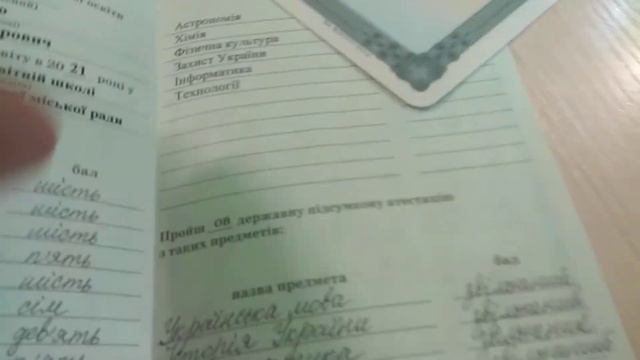 освіти
рович
віту в 20 21 році у
вітній школі
міської ради
бал
шість
шість
шість
п'ять
шість
сім
дев'ять
Астрономія
Хімія
Фізична культура
Захист України
Інформатика
Технології
Пройш ов державну підсумкову атестацію
з таких предметів:
назва предмета бал
Українська мова звільнений
Історія України звільнений
звільнений